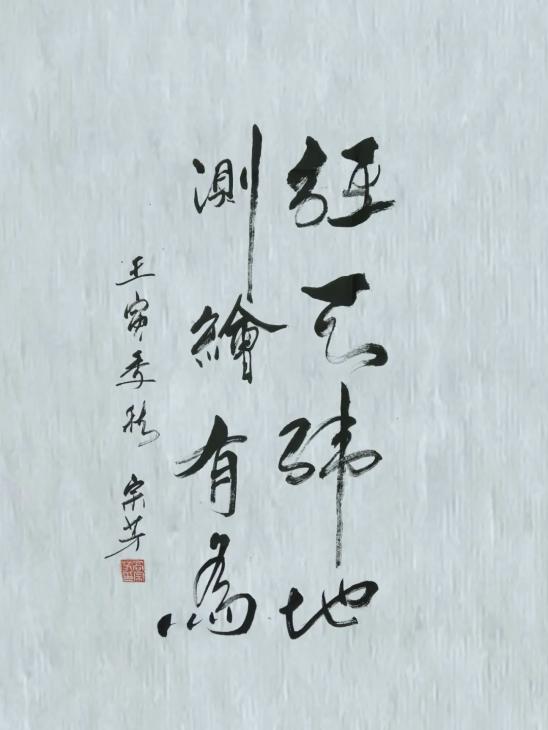 經天緯地
測繪有為
壬寅季秋 宗芳